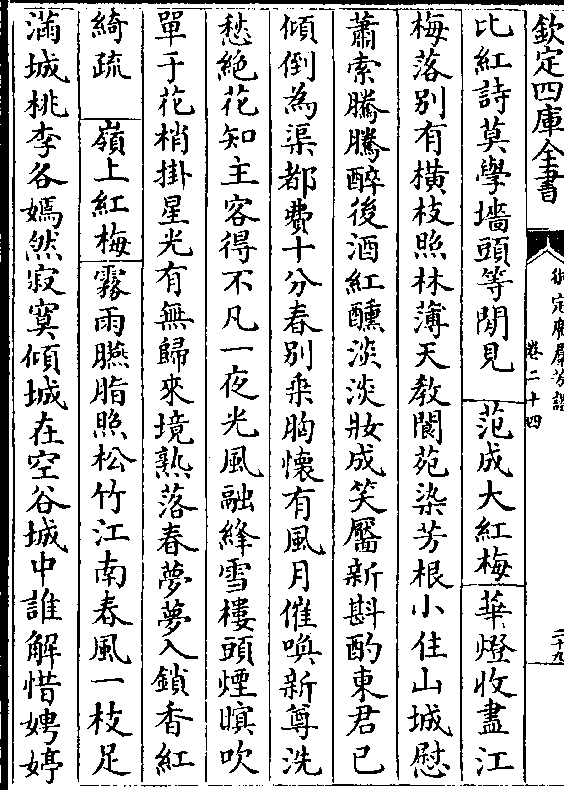 欽定四庫全書
御定廣羣芳譜
卷二十四
二十九
比紅詩莫學墻頭等閒見 范成大紅梅 華燈收盡江
梅落别有橫枝照林薄天教閬苑染芳根小住山城慰
蕭索騰騰醉後酒紅醺淡淡妝成笑靨新斟酌東君已
傾倒為渠都費十分春别乗胸懷有風月催喚新尊洗
愁絶花知主客得不凡一夜光風融絳雪樓頭煙暝吹
單于花梢掛星光有無歸來境熟落春夢夢入鎖香紅
綺疏 嶺上紅梅 霧雨臙脂照松竹江南春風一枝足
滿城桃李各嫣然寂寞傾城在空谷城中誰解惜娉婷